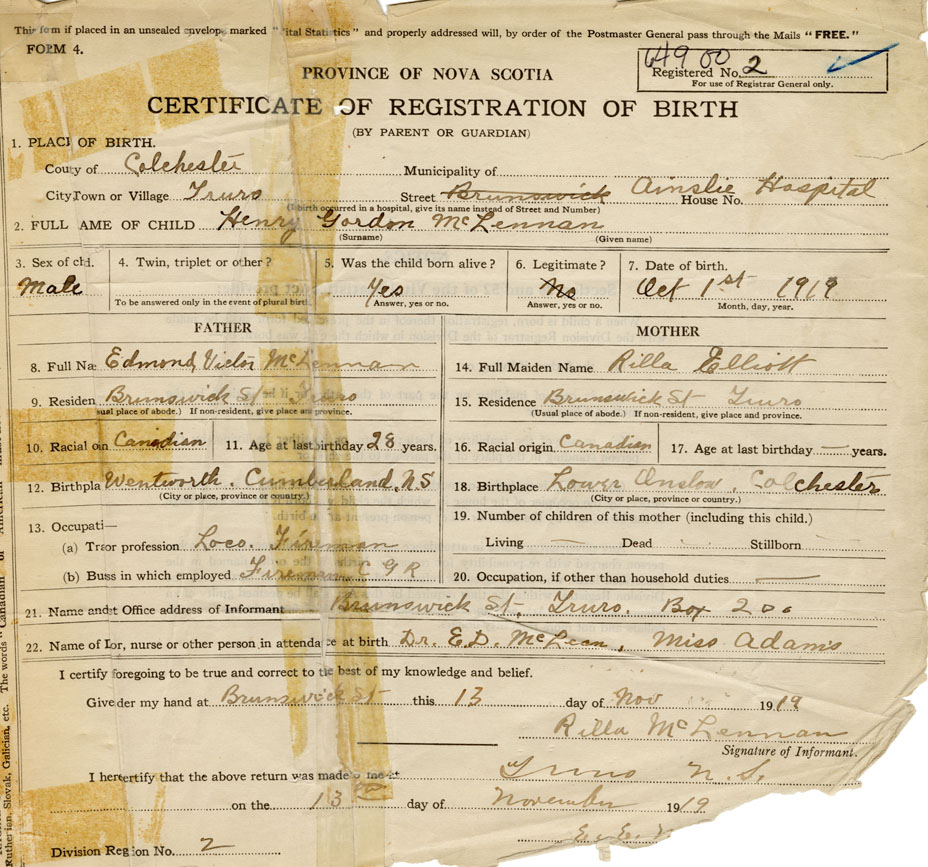 This form if placed in an unsealed envelope marked "Vital Statistics" and properly addressed will, by order of the Postmaster General pass through the Mails "FREE."
FORM 4.
649 00
Registered No. 2
For use of Registrar General only.
PROVINCE OF NOVA SCOTIA
CERTIFICATE OF REGISTRATION OF BIRTH
(BY PARENT OR GUARDIAN)
1. PLACE OF BIRTH.
County of Colchester Municipality of
City, Town or Village Truro Street Brunswick Ainslie Hospital House No.
birth occurred in a hospital, give its name instead of Street and Number)
2. FULL AME OF CHILD Henry Gordon McLennan
(Surname) (Given name)
3. Sex of chd. 4. Twin, triplet or other? 5. Was the child born alive? 6. Legitimate? 7. Date of birth.
Male Yes No Oct 1st 1919
To be answered only in the event of plural birth Answer, yes or no. Answer, yes or no. Month, day, year.
FATHER MOTHER
8. Full Na Edmond Victor McLennan
9. Residen Brunswick St Truro
usual place of abode.) If non-resident, give place and province.
10. Racial oin Canadian 11. Age at last birthday 28 years.
12. Birthpla Wentworth, Cumberland, N.S
(City or place, province or country.)
13. Occupati—
(a) Traor profession Loco Fireman
(b) Buss in which employed Fireman C G R
14. Full Maiden Name Rilla Elliott
15. Residence Brunswick St Truro
(Usual place of abode.) If non-resident, give place and province.
16. Racial origin Canadian 17. Age at last birthday years.
18. Birthplace Lower Onslow, Colchester
(City or place, province or country.)
19. Number of children of this mother (including this child.)
Living — Dead — Stillborn —
20. Occupation, if other than household duties —
21. Name andt Office address of Informant Brunswick St, Truro. Box 200
22. Name of or, nurse or other person in attendance at birth Dr. E.D. McLean, Miss Adams
I certify foregoing to be true and correct to the best of my knowledge and belief.
Giveder my hand at Brunswick St this 13 day of Nov 1919
Rilla McLennan
Signature of Informant.
I herertify that the above return was made to me at Truro N.S.
on the 13th day of November 1919
E. E.
Division Region No. 2
Ruthenian, Slovak, Galician, etc. The words "Canadian" or "American"